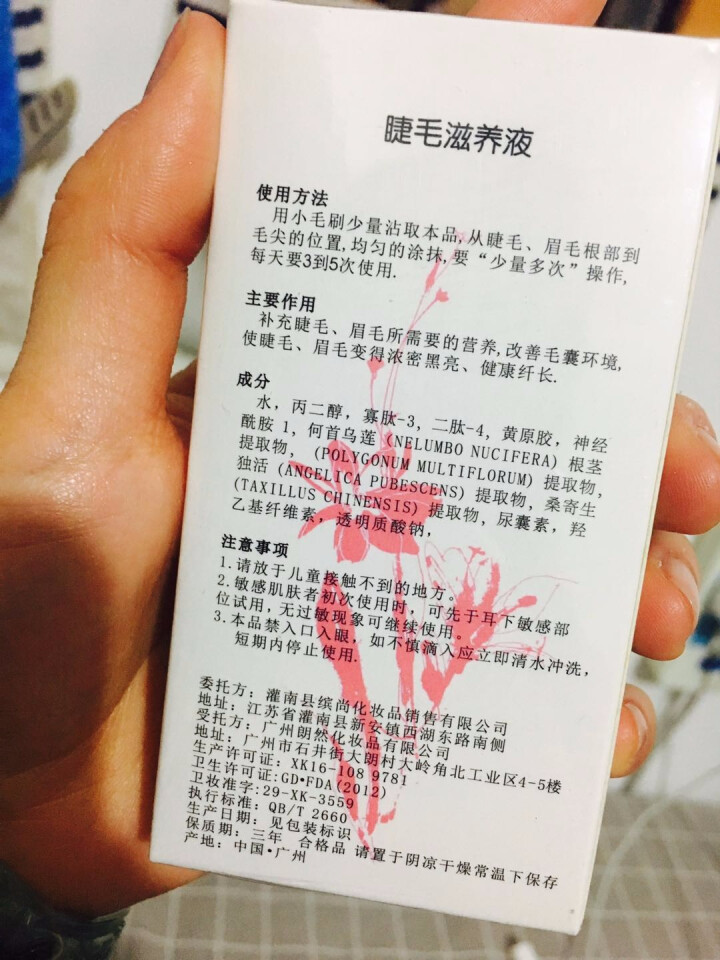 睫毛滋养液
使用方法
用小毛刷少量沾取本品,从睫毛、眉毛根部到
毛尖的位置,均匀的涂抹,要“少量多次”操作,
每天要3到5次使用.
主要作用
补充睫毛、眉毛所需要的营养,改善毛囊环境,
使睫毛、眉毛变得浓密黑亮、健康纤长.
成分
水，丙二醇，寡肽-3，二肽-4，黄原胶，神经
酰胺 1，何首乌莲（NELUMBO NUCIFERA）根茎
提取物，（POLYGONUM MULTIFLORUM）提取物，
独活（ANGELICA PUBESCENS）提取物，桑寄生
（TAXILLUS CHINENSIS）提取物，尿囊素，羟
乙基纤维素，透明质酸钠，
注意事项
1.请放于儿童接触不到的地方。
2.敏感肌肤者初次使用时，可先于耳下敏感部
位试用，无过敏现象可继续使用。
3.本品禁入口入眼，如不慎滴入应立即清水冲洗，
短期内停止使用.
委托方：灌南县缤尚化妆品销售有限公司
地址：江苏省灌南县新安镇西湖东路南侧
受托方：广州朗然化妆品有限公司
地址：广州市石井街大朗村大岭角北工业区4-5楼
生产许可证：XK16-108 9781
卫生许可证:GD•FDA(2012)
卫妆准字:29-XK-3559
执行标准：QB/T 2660
生产日期：见包装标识
保质期：三年 合格品 请置于阴凉干燥常温下保存
产地：中国·广州